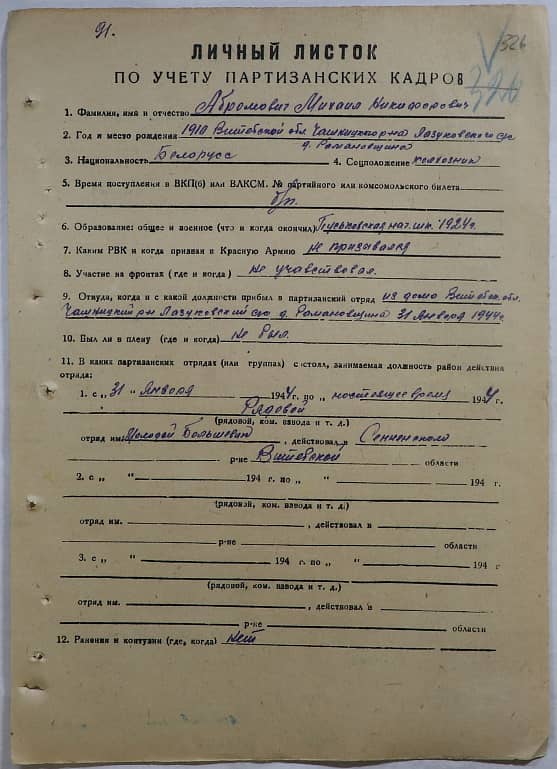 91.
326
326
ЛИЧНЫЙ ЛИСТОК
ПО УЧЕТУ ПАРТИЗАНСКИХ КАДРОВ
1. Фамилия, имя и отчество Абромович Михаил Никифорович
2. Год и место рождения 1910 Витебской обл. Чашницкого р-на Лазуковского с/с
д. Романовщина
3. Национальность Белорусс 4. Соцположение колхозник
5. Время поступления в ВКП(б) или ВЛКСМ. № партийного или комсомольского билета
б/п.
6. Образование: общее и военное (что и когда окончил) нач. шк. 1924 г.
7. Каким РВК и когда призван в Красную Армию не призывался
8. Участие на фронтах (где и когда) не учавствовал.
9. Откуда, когда и с какой должности прибыл в партизанский отряд из дома Витебск. обл.
Чашницкий р-н Лазуковский с/с д. Романовщина 31 Января 1944 г
10. Был ли в плену (где и когда) не был.
11. В каких партизанских отрядах (или группах) состоял, занимаемая должность район действия
отряда:
1. с „ 31 “ Января 1944 г. по „ настоящее время 1944 г.
Рядовой
(рядовой, ком. взвода и т. д.)
отряд им. Молодой Большевик, действовал в Сенненском
р-не Витебской области
2. с „ “ 194 г. по „ “ 194 г.
(рядовой, ком. взвода и т. д.)
отряд им. , действовал в
р-не области
3. с „ “ 194 г. по „ “ 194 г.
(рядовой, ком. взвода и т. д.)
отряд им. , действовал в
р-не области
12. Ранения и контузии (где, когда) нет